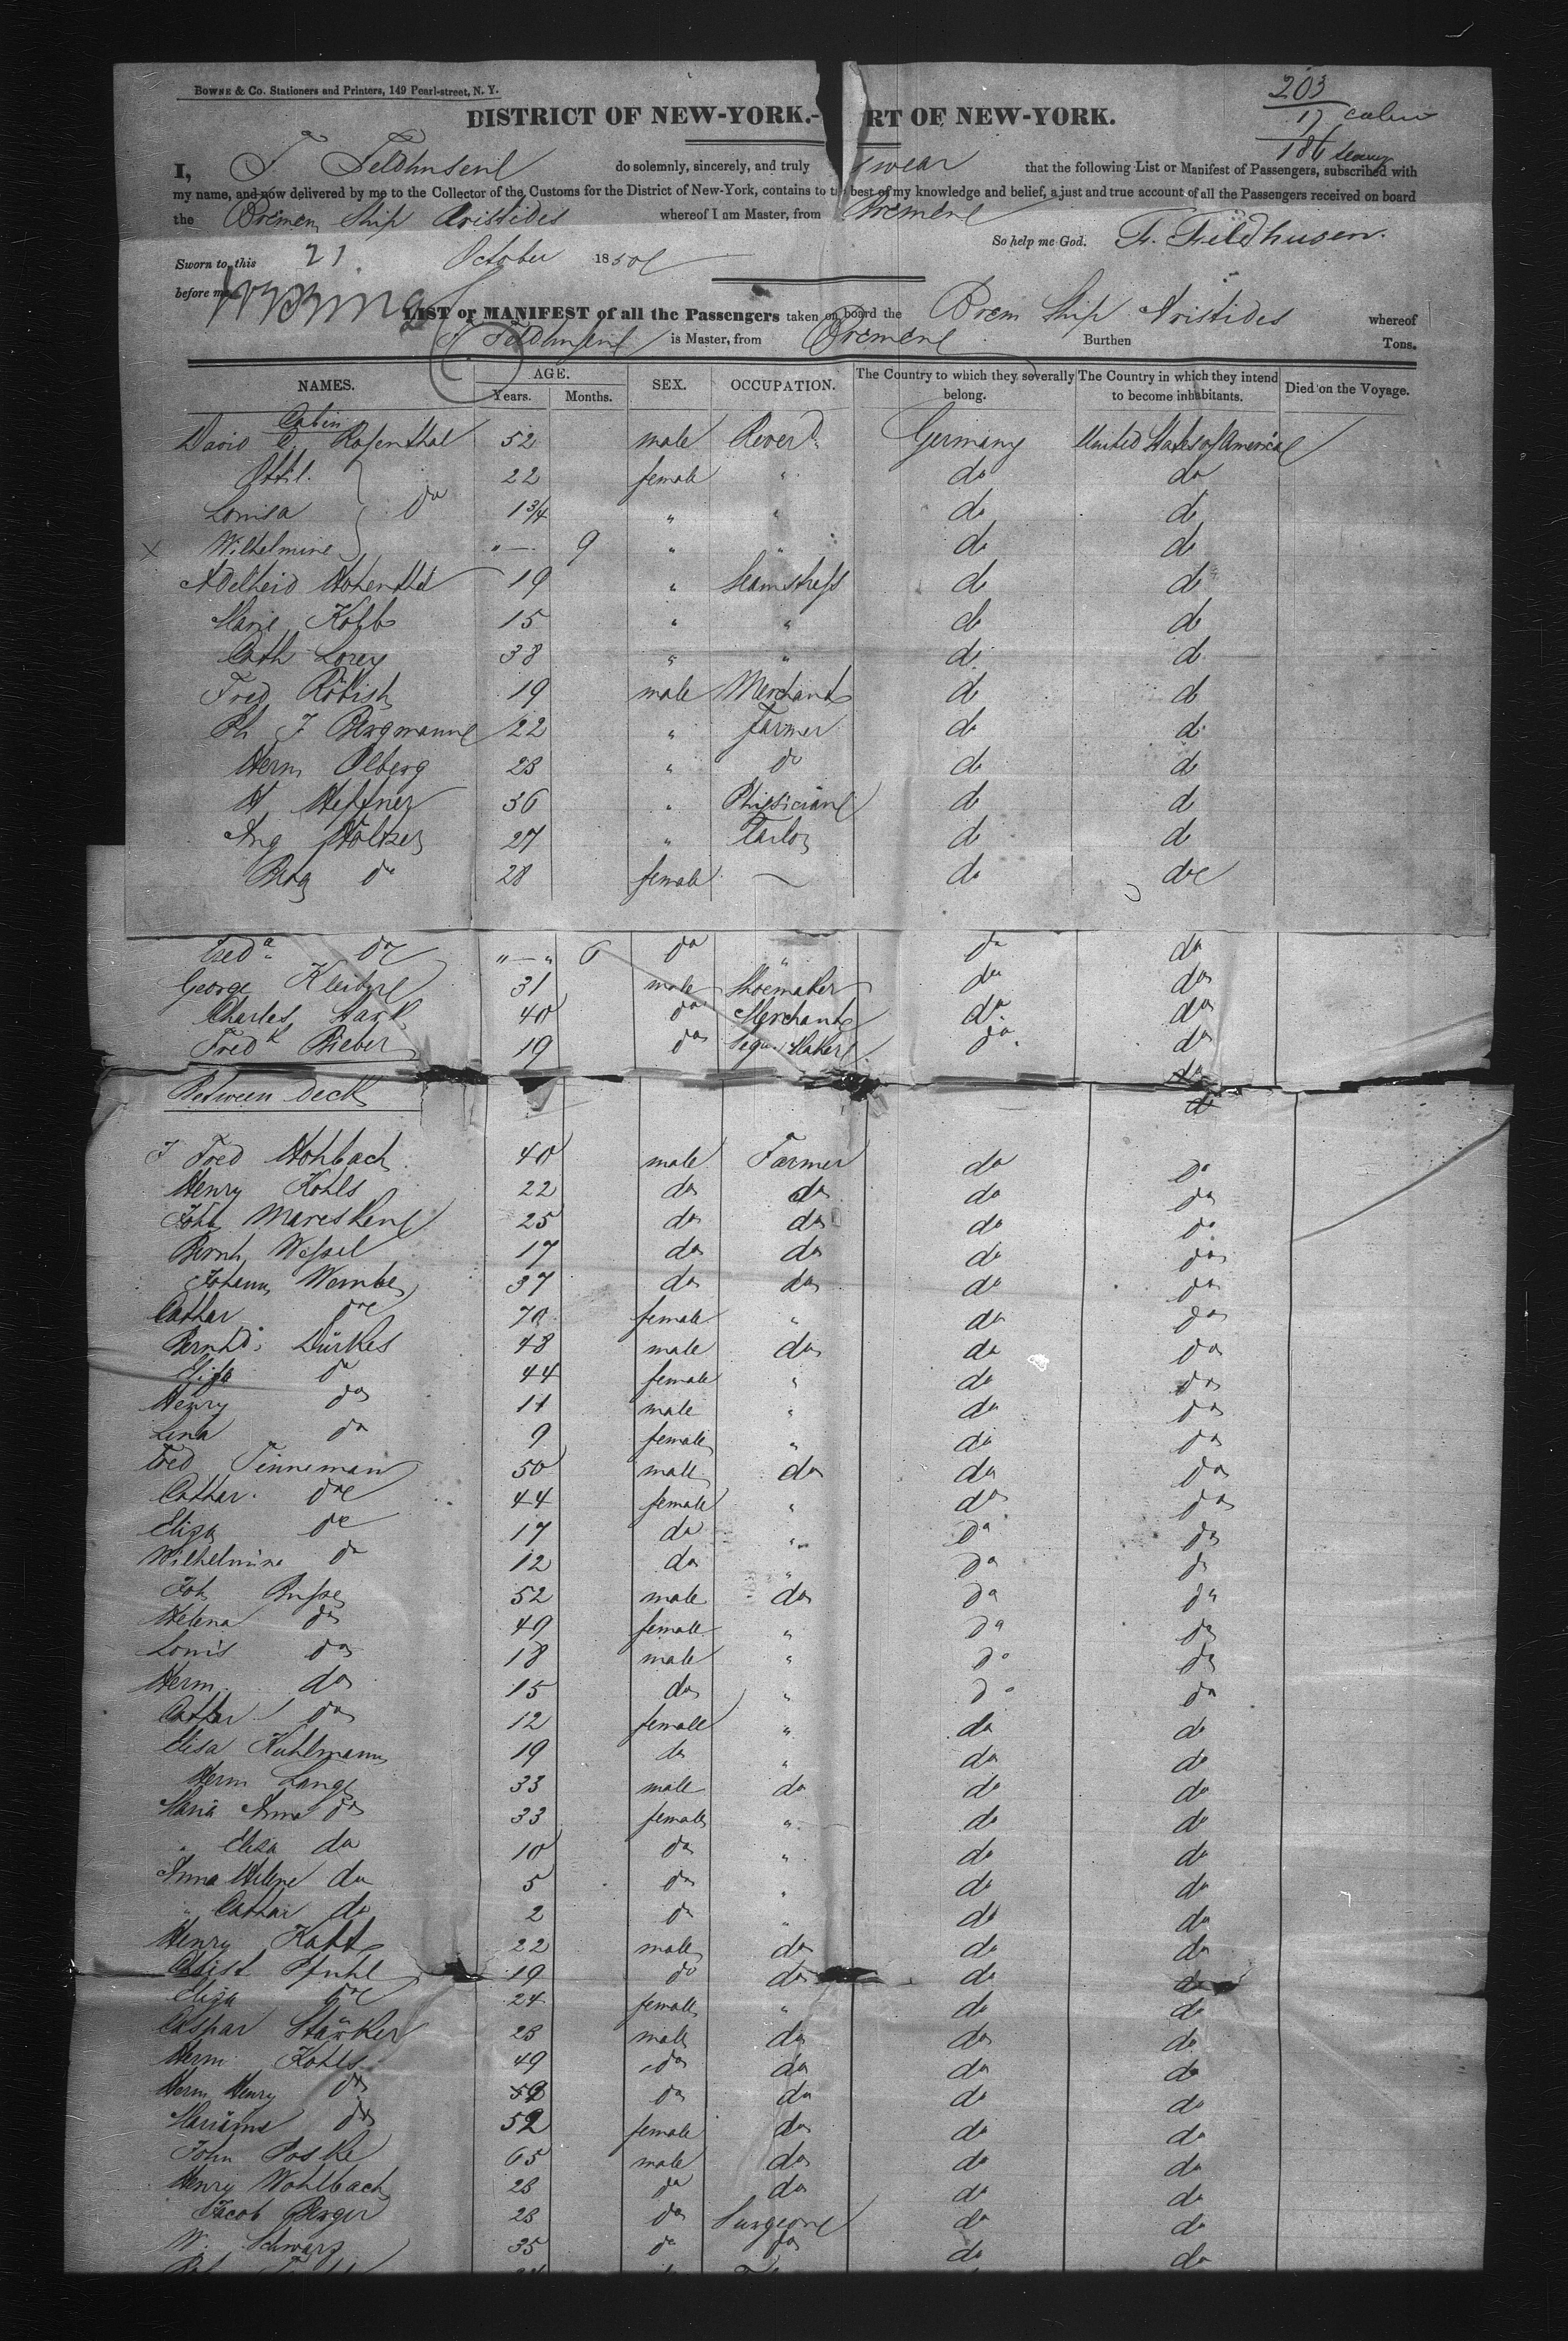 BOWNE & Co. Stationers and Printers, 149 Pearl-street, N. Y.
203
17 cabin
186
DISTRICT OF NEW-YORK.- RT OF NEW-YORK.
I, F Feldhusen do solemnly, sincerely, and truly swear that the following List or Manifest of Passengers, subscribed with
my name, and now delivered by me to the Collector of the Customs for the District of New-York, contains to the best of my knowledge and belief, a just and true account of all the Passengers received on board
the Bremen Ship Aristides whereof I am Master, from Bremen
So help me God. F. Feldhusen.
Sworn to this 21 October 1850
before me
LIST or MANIFEST of all the Passengers taken on board the Brem Ship Aristides whereof
F Feldhusen is Master, from Bremen Burthen Tons.
NAMES. AGE. Years. Months. SEX. OCCUPATION. The Country to which they severally belong. The Country in which they intend to become inhabitants. Died on the Voyage.
Cabin
David Rosenthal 52 male Reverd. Germany United States of America
Ottil. 22 female " do do
Louisa } do 1 3/4 " " do do
x Wilhelmine "—. 9 " " do do
Adelheid 19 " Seamstress do do
Marie Kolb 15 " " do do
Cath Lorey 38 " " do do
Fred Röbish 19 male Merchant do do
Ph J Bergmann 22 " Farmer do do
Herm Olberg 23 " do do do
H Heffner 36 " Phisician do do
Aug Stoltzer 27 " Tailor do do
do 28 female — do do
Freda. do "—" 6 do " do do
George Kleibyl 31 male Shoemaker do do
Charles Stark 40 do Merchant do. do
Fredk Bieber 19 do Segar Maker do. do
do
Between Deck do
J Fred Hohbach 40 male Farmer do do
Henry Kohls 22 do do do do
Joh Maresken 25 do do do do
Bernh Wessel 17 do do do do
Johann Wembe 37 do do do do
Cathar do 70 female " do do
Bernhd. Dürkes 48 male do do do
Elisa do 44 female " do do
Henry do 11 male " do do
Lina do 9 female " do do
Fred Tenneman 50 male do do do
Cathar. do 44 female " do do
Eliza do 17 do " do do
Wilhelmine do 12 do " do do
Joh Busse 52 male do do do
Helena do 49 female " do do
Louis do 18 male " do do
Herm. do 15 do " do do
Cathar do 12 female " do do
Elisa Kuhlmann 19 do " do do
Herm Lange 33 male do do do
Maria Anna do 33 female " do do
" Elisa do 10 do " do do
Anna Helene do 5 do " do do
" Cathar do 2 do " do do
Henry Katt 22 male do do do
Christ Pfuhl 19 do do do do
Eliza do 24 female " do do
Caspar Stärker 23 male do do do
Herm Kohls 49 do do do do
Herm Henry do do do do do
Mariane do 52 female do do do
John Poske 65 male do do do
Henry Wohlbach 23 do do do do
Jacob Berger 23 do Surgeon do do
W. Schwarz 35 do do do do